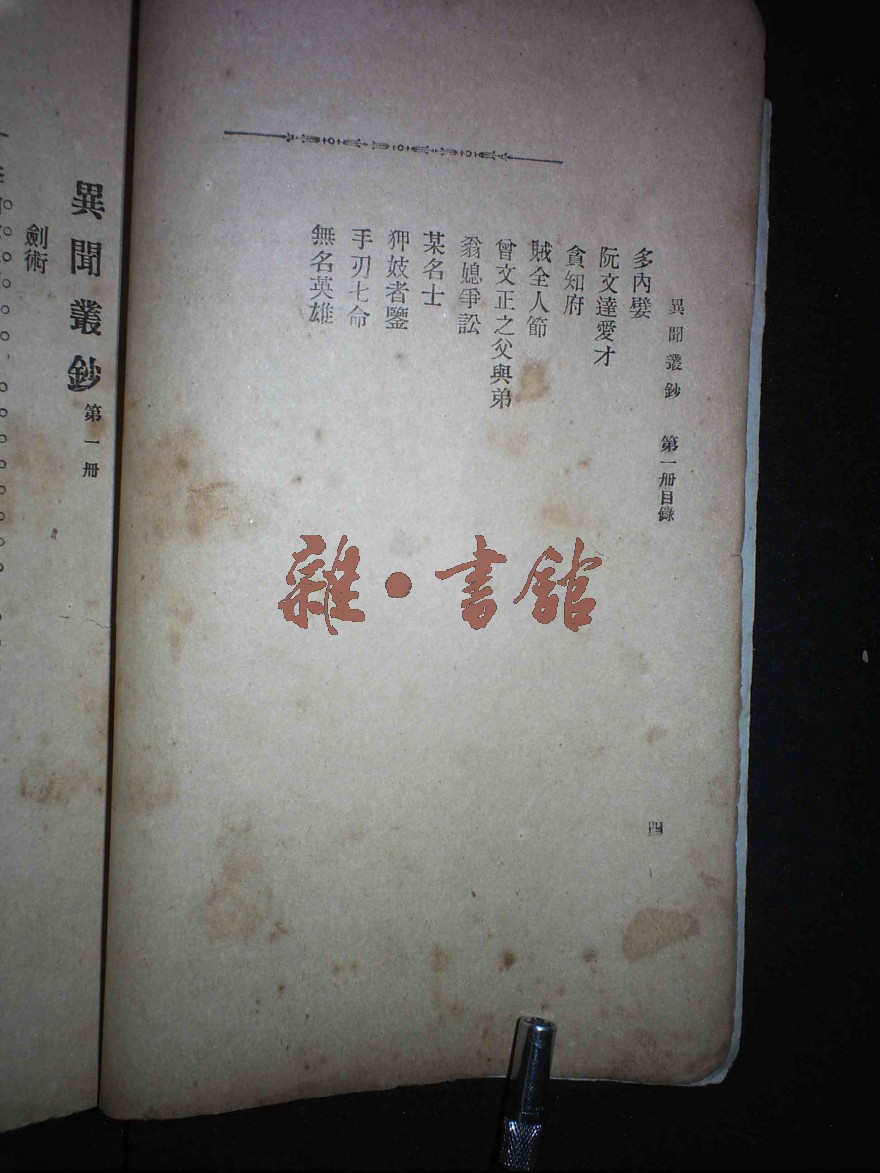 異聞叢鈔 第一冊目錄
多內嬖
阮文達愛才
貪知府
賊全人節
曾文正之父與弟
翁媳爭訟
某名士
狎妓者鑒
手刃七命
無名英雄
四
異聞叢鈔 第一冊
劍術
雜·書館